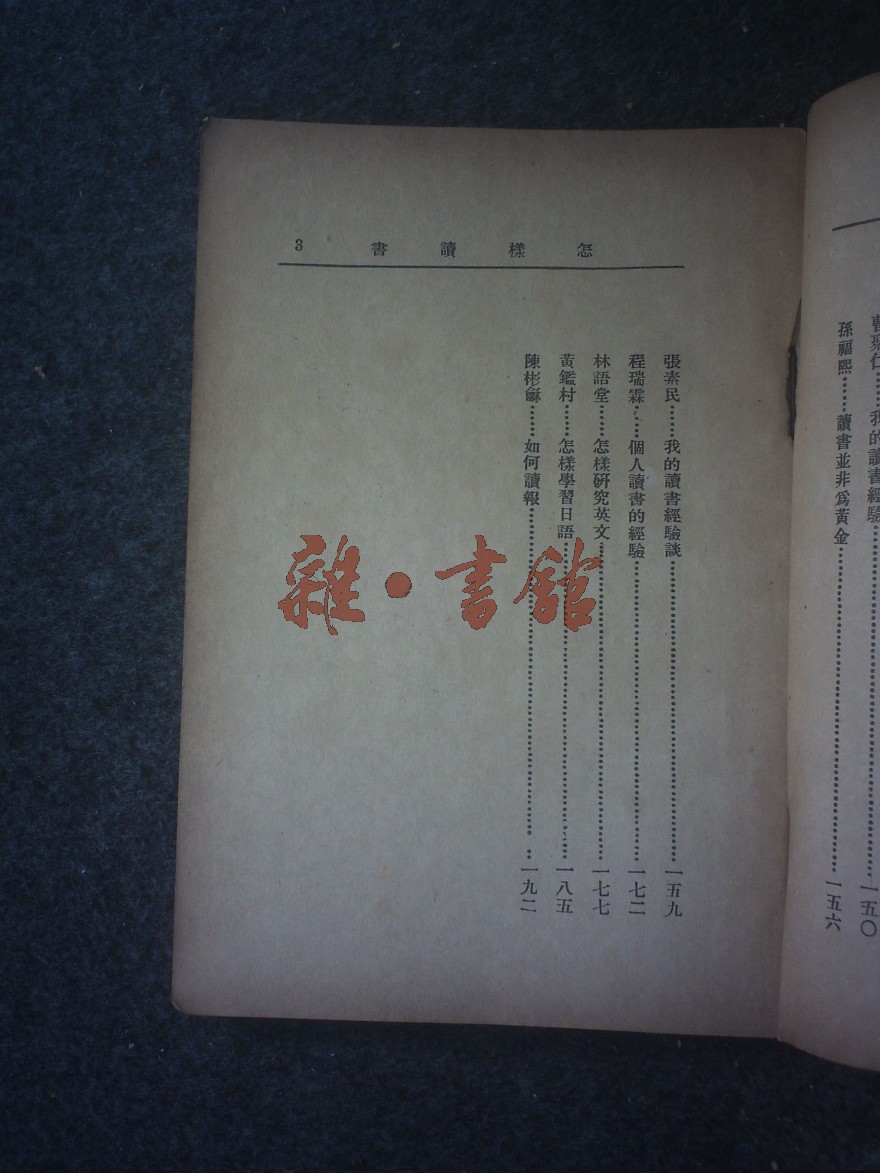 曹聚仁……我的讀書經驗……一五〇
孫福熙……讀書並非爲黃金……一五六
怎樣讀書 3
張素民……我的讀書經驗談……一五九
程瑞霖……個人讀書的經驗……一七二
林語堂……怎樣研究英文……一七七
黃鑑村……怎樣學習日語……一八五
陳彬龢……如何讀報……一九二
雜·書館